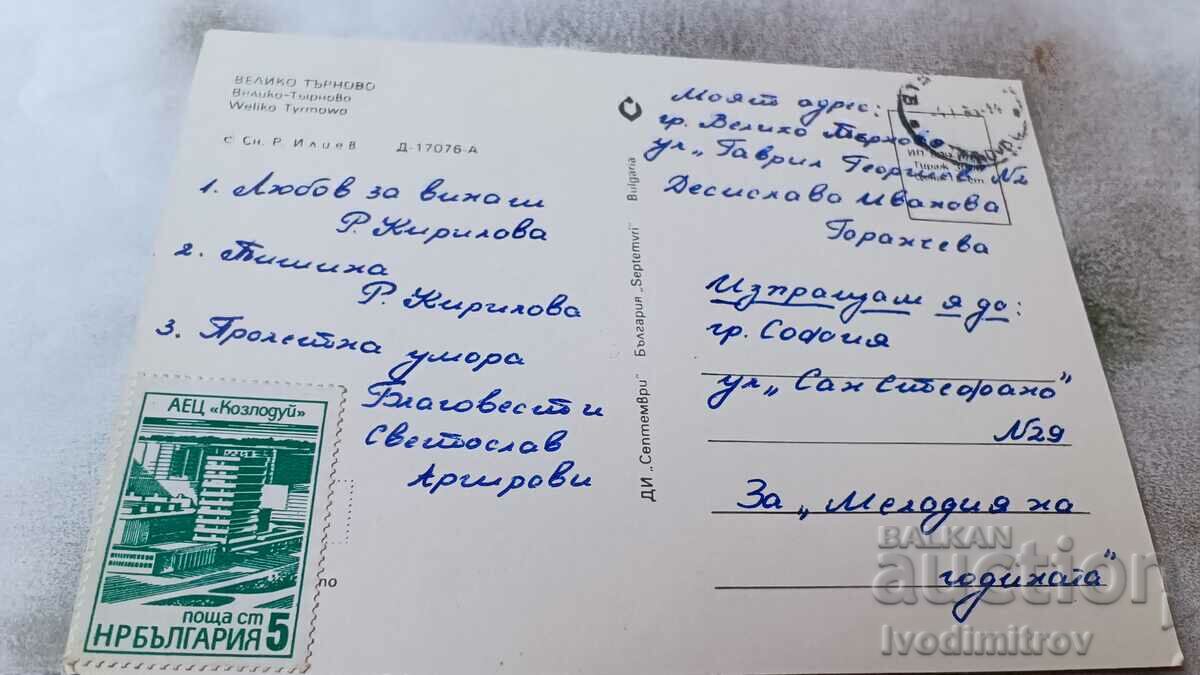 ВЕЛИКО ТЪРНОВО
Вилико-Тырново
Weliko Tyrmowo
с Сн. Р. Илиев Д-17076-А
1. Любов за винаги
Р. Кирилова
2. Тишина
Р. Кирилова
3. Пролетна умора
Благовест и
Светослав
Аргирови
АЕЦ «Козлодуй»
поща ст
НРБЪЛГАРИЯ 5
по
ДИ „Септември" България „Septemvri" Bulgaria
Моят адрес:
гр. Велико Търново
ул „Гаврил Георгиев" №2
Десислава Иванова
Горанчева
Тираж
Изпращам я до:
гр. София
ул „Сан Стефано"
№29
За „Мелодия на
годината"
BALKAN
auction
Ivodimitrov